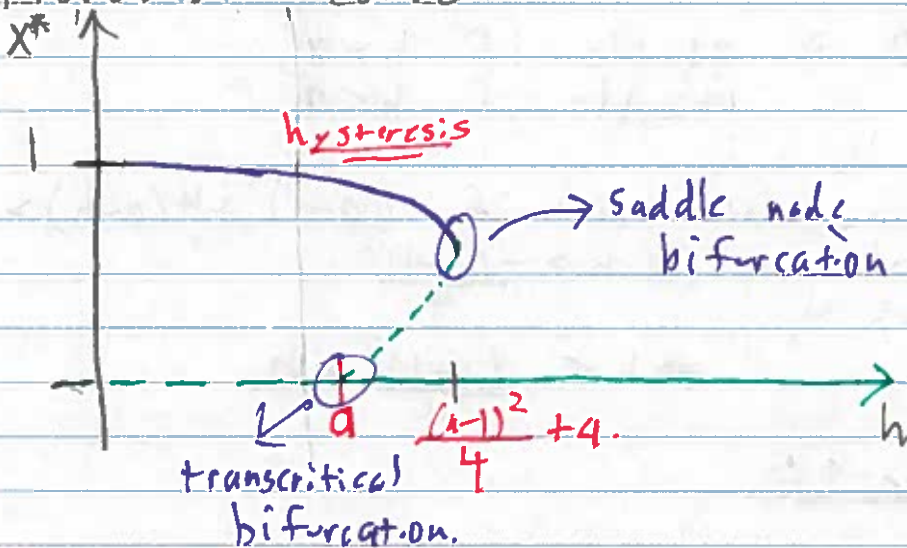 X*
1
hysteresis
saddle node
bifurcation
a
(a-1)²
4
+a.
h
transcritical
bifurcation.